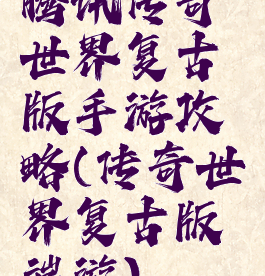 腾讯传奇
世界复古
版手游攻
略(传奇世
界复古版
端游)